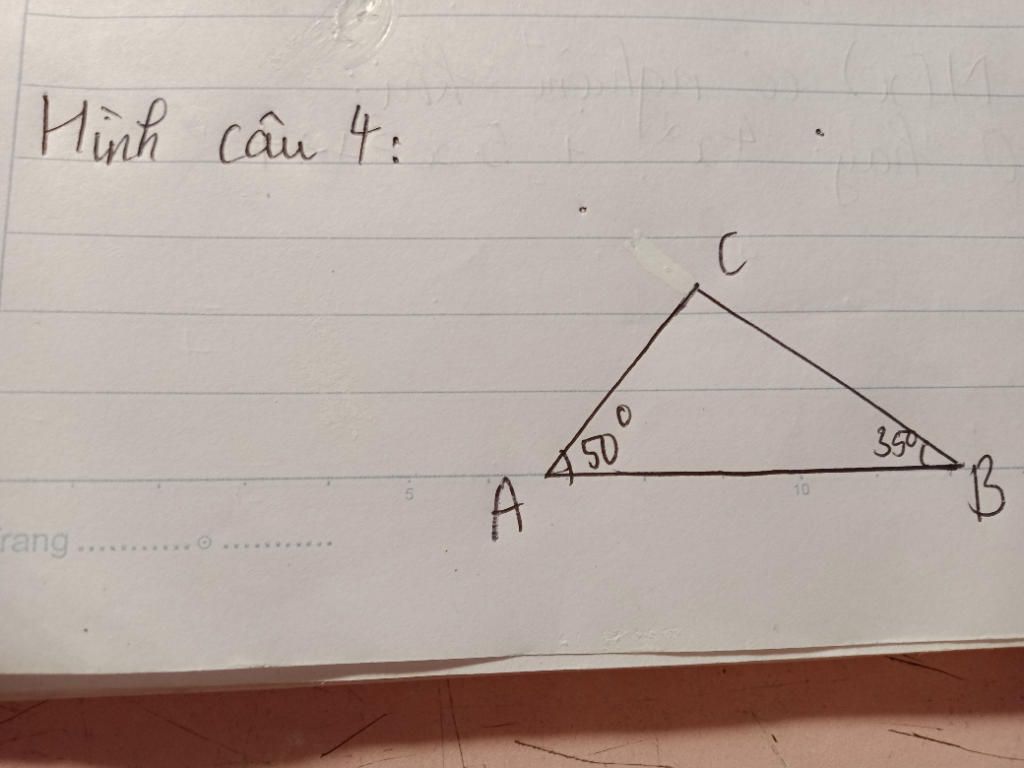 Hình câu 4:
C
50°
35°
A
B
5
10
rang ...........⊙...........